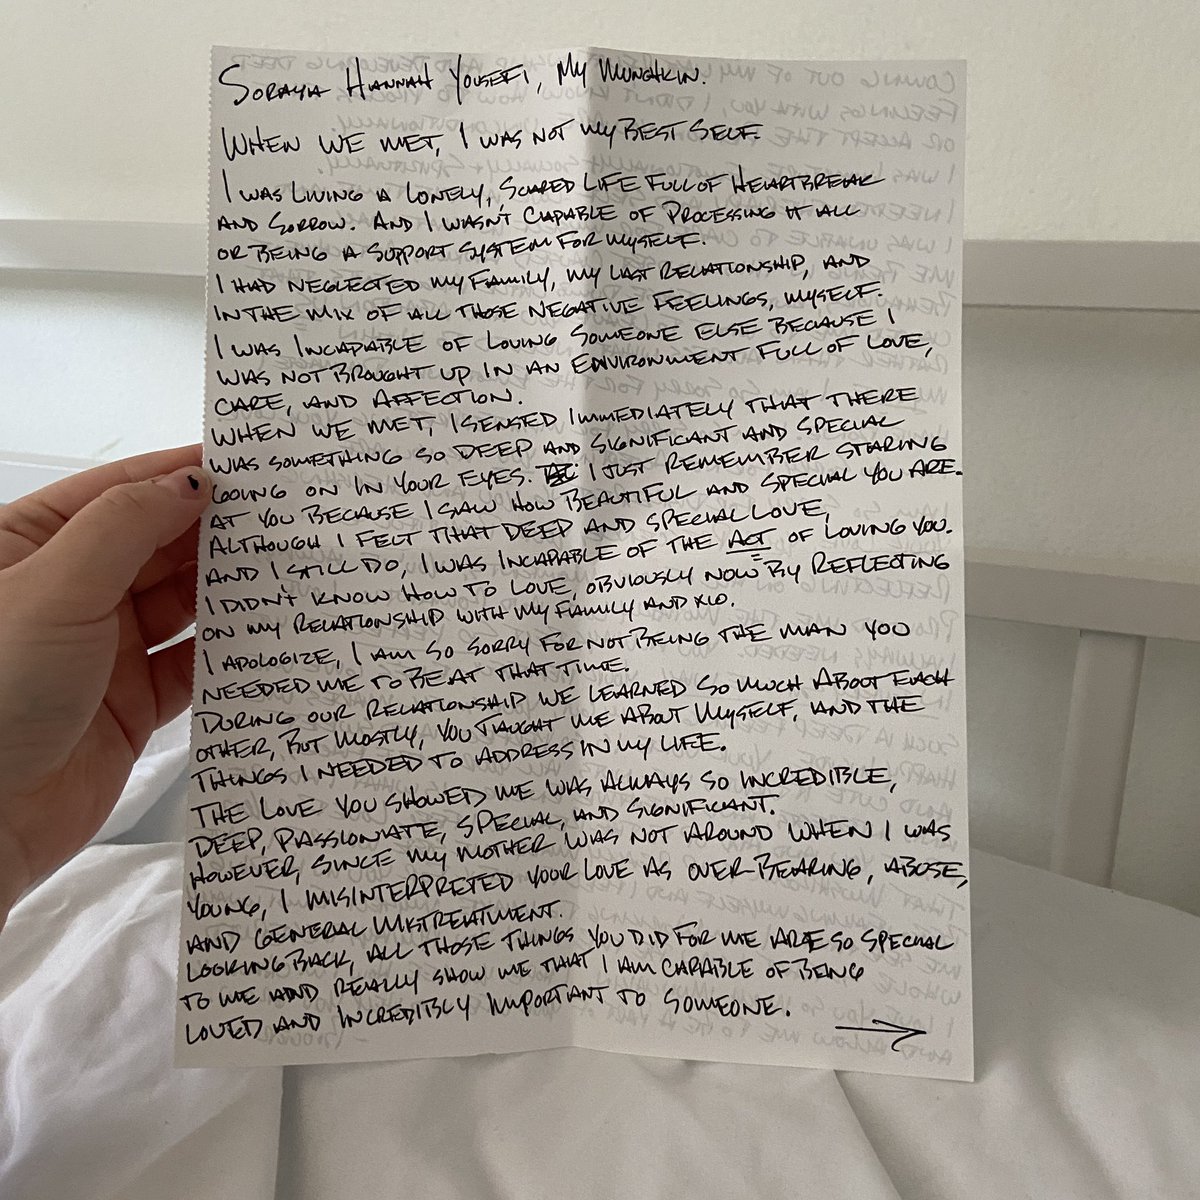 SORAYA HANNAH YOUSEFI, MY MUNCHKIN.
WHEN WE MET, I WAS NOT MY BEST SELF.
I WAS LIVING A LONELY, SCARED LIFE FULL OF HEARTBREAK
AND SORROW. AND I WASN'T CAPABLE OF PROCESSING IT ALL
OR BEING A SUPPORT SYSTEM FOR MYSELF.
I HAD NEGLECTED MY FAMILY, MY LAST RELATIONSHIP, AND
IN THE MIX OF ALL THOSE NEGATIVE FEELINGS, MYSELF.
I WAS INCAPABLE OF LOVING SOMEONE ELSE BECAUSE I
WAS NOT BROUGHT UP IN AN ENVIRONMENT FULL OF LOVE,
CARE, AND AFFECTION.
WHEN WE MET, I SENSED IMMEDIATELY THAT THERE
WAS SOMETHING SO DEEP AND SIGNIFICANT AND SPECIAL
GOING ON IN YOUR EYES. I JUST REMEMBER STARING
AT YOU BECAUSE I SAW HOW BEAUTIFUL AND SPECIAL YOU ARE.
ALTHOUGH I FELT THAT DEEP AND SPECIAL LOVE,
AND I STILL DO, I WAS INCAPABLE OF THE ACT OF LOVING YOU.
I DIDN'T KNOW HOW TO LOVE, OBVIOUSLY NOW BY REFLECTING
ON MY RELATIONSHIP WITH MY FAMILY AND XIO.
I APOLOGIZE, I AM SO SORRY FOR NOT BEING THE MAN YOU
NEEDED ME TO BE AT THAT TIME.
DURING OUR RELATIONSHIP WE LEARNED SO MUCH ABOUT EACH
OTHER, BUT MOSTLY, YOU TAUGHT ME ABOUT MYSELF, AND THE
THINGS I NEEDED TO ADDRESS IN MY LIFE.
THE LOVE YOU SHOWED ME WAS ALWAYS SO INCREDIBLE,
DEEP, PASSIONATE, SPECIAL, AND SIGNIFICANT.
HOWEVER, SINCE MY MOTHER WAS NOT AROUND WHEN I WAS
YOUNG, I MISINTERPRETED YOUR LOVE AS OVER-BEARING, ABUSE,
AND GENERAL MISTREATMENT.
LOOKING BACK, ALL THOSE THINGS YOU DID FOR ME ARE SO SPECIAL
TO ME AND REALLY SHOW ME THAT I AM CAPABLE OF BEING
LOVED AND INCREDIBLY IMPORTANT TO SOMEONE.